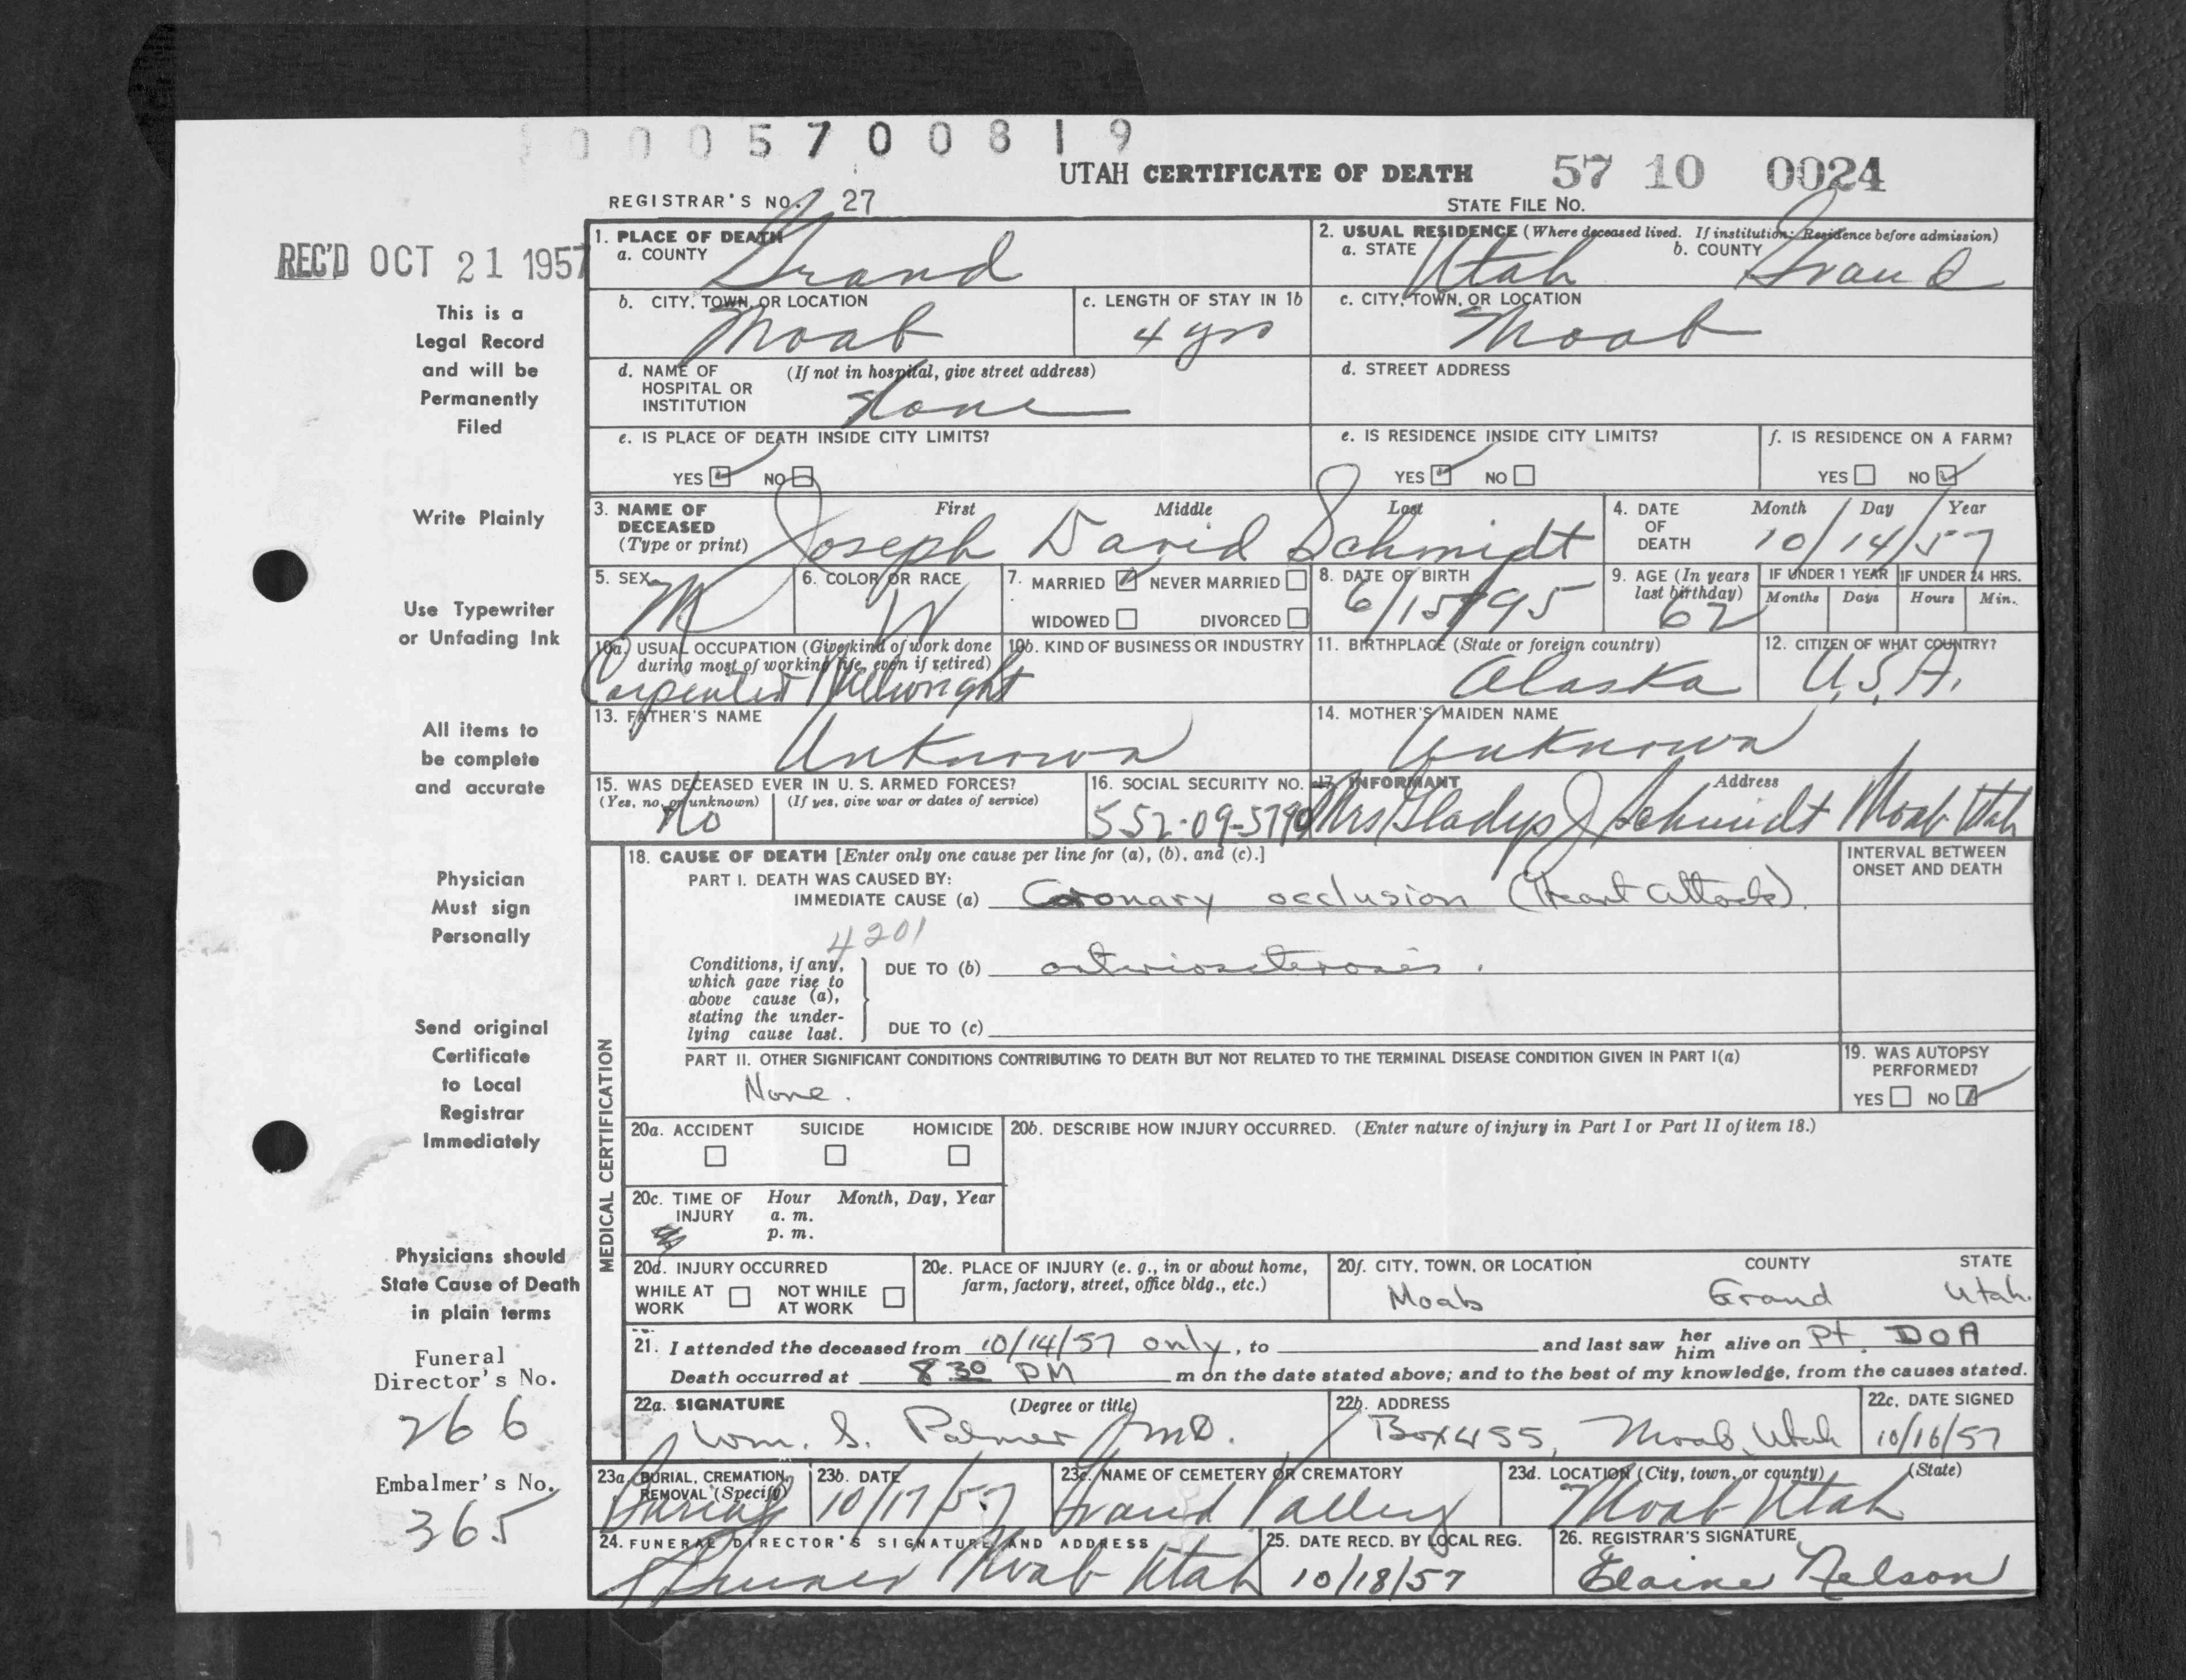 0005700819
UTAH CERTIFICATE OF DEATH 57 10 0024
REGISTRAR'S NO. 27 STATE FILE NO.
REC'D OCT 21 1957
This is a
Legal Record
and will be
Permanently
Filed
Write Plainly
Use Typewriter
or Unfading Ink
All items to
be complete
and accurate
Physician
Must sign
Personally
Send original
Certificate
to Local
Registrar
Immediately
Physicians should
State Cause of Death
in plain terms
Funeral
Director's No.
266
Embalmer's No.
365
1. PLACE OF DEATH
a. COUNTY Grand
2. USUAL RESIDENCE (Where deceased lived. If institution: Residence before admission)
a. STATE Utah b. COUNTY Grand
b. CITY, TOWN, OR LOCATION Moab
c. LENGTH OF STAY IN 1b 4 yrs
c. CITY, TOWN, OR LOCATION Moab
d. NAME OF (If not in hospital, give street address)
HOSPITAL OR
INSTITUTION
d. STREET ADDRESS
e. IS PLACE OF DEATH INSIDE CITY LIMITS?
YES NO
e. IS RESIDENCE INSIDE CITY LIMITS?
YES NO
f. IS RESIDENCE ON A FARM?
YES NO
3. NAME OF First Middle Last
DECEASED
(Type or print) Joseph David Schmidt
4. DATE Month Day Year
OF
DEATH 10/14/57
5. SEX M
6. COLOR OR RACE W
7. MARRIED NEVER MARRIED
WIDOWED DIVORCED
8. DATE OF BIRTH
6/15/95
9. AGE (In years
last birthday) 62
IF UNDER 1 YEAR IF UNDER 24 HRS.
Months Days Hours Min.
10a. USUAL OCCUPATION (Give kind of work done
during most of working life, even if retired)
Carpenter Millwright
10b. KIND OF BUSINESS OR INDUSTRY
11. BIRTHPLACE (State or foreign country)
Alaska
12. CITIZEN OF WHAT COUNTRY?
U.S.A.
13. FATHER'S NAME
Unknown
14. MOTHER'S MAIDEN NAME
Unknown
15. WAS DECEASED EVER IN U. S. ARMED FORCES?
(Yes, no, or unknown) (If yes, give war or dates of service)
No
16. SOCIAL SECURITY NO.
552-09-5790
17. INFORMANT Address
Mrs Gladys J Schmidt Moab Utah
MEDICAL CERTIFICATION
18. CAUSE OF DEATH [Enter only one cause per line for (a), (b), and (c).]
INTERVAL BETWEEN
ONSET AND DEATH
PART I. DEATH WAS CAUSED BY:
IMMEDIATE CAUSE (a) Coronary occlusion (Heart attack).
4201
Conditions, if any,
which gave rise to
above cause (a),
stating the under-
lying cause last.
DUE TO (b) arteriosclerosis.
DUE TO (c)
PART II. OTHER SIGNIFICANT CONDITIONS CONTRIBUTING TO DEATH BUT NOT RELATED TO THE TERMINAL DISEASE CONDITION GIVEN IN PART I(a)
None.
19. WAS AUTOPSY
PERFORMED?
YES NO
20a. ACCIDENT SUICIDE HOMICIDE
20b. DESCRIBE HOW INJURY OCCURRED. (Enter nature of injury in Part I or Part II of item 18.)
20c. TIME OF Hour Month, Day, Year
INJURY a. m.
p. m.
20d. INJURY OCCURRED
WHILE AT NOT WHILE
WORK AT WORK
20e. PLACE OF INJURY (e. g., in or about home,
farm, factory, street, office bldg., etc.)
20f. CITY, TOWN, OR LOCATION COUNTY STATE
Moab Grand Utah.
21. I attended the deceased from 10/14/57 only, to and last saw her him alive on Pt. DOA
Death occurred at 8 30 PM m on the date stated above; and to the best of my knowledge, from the causes stated.
22a. SIGNATURE (Degree or title)
Wm. S. Palmer MD.
22b. ADDRESS
Box 455, Moab, Utah
22c. DATE SIGNED
10/16/57
23a. BURIAL, CREMATION,
REMOVAL (Specify)
Burial
23b. DATE
10/17/57
23c. NAME OF CEMETERY OR CREMATORY
Grand Valley
23d. LOCATION (City, town, or county) (State)
Moab Utah
24. FUNERAL DIRECTOR'S SIGNATURE AND ADDRESS
Moab Utah
25. DATE RECD. BY LOCAL REG.
10/18/57
26. REGISTRAR'S SIGNATURE
Elaine Nelson